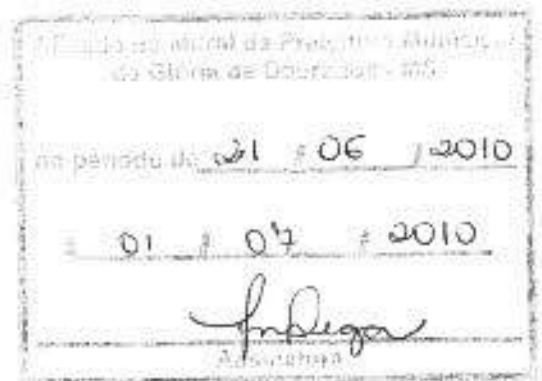 Afixado no mural da Prefeitura Municipal
de Glória de Dourados - MS
no período de 21 / 06 / 2010
a 01 / 07 / 2010
Assinatura